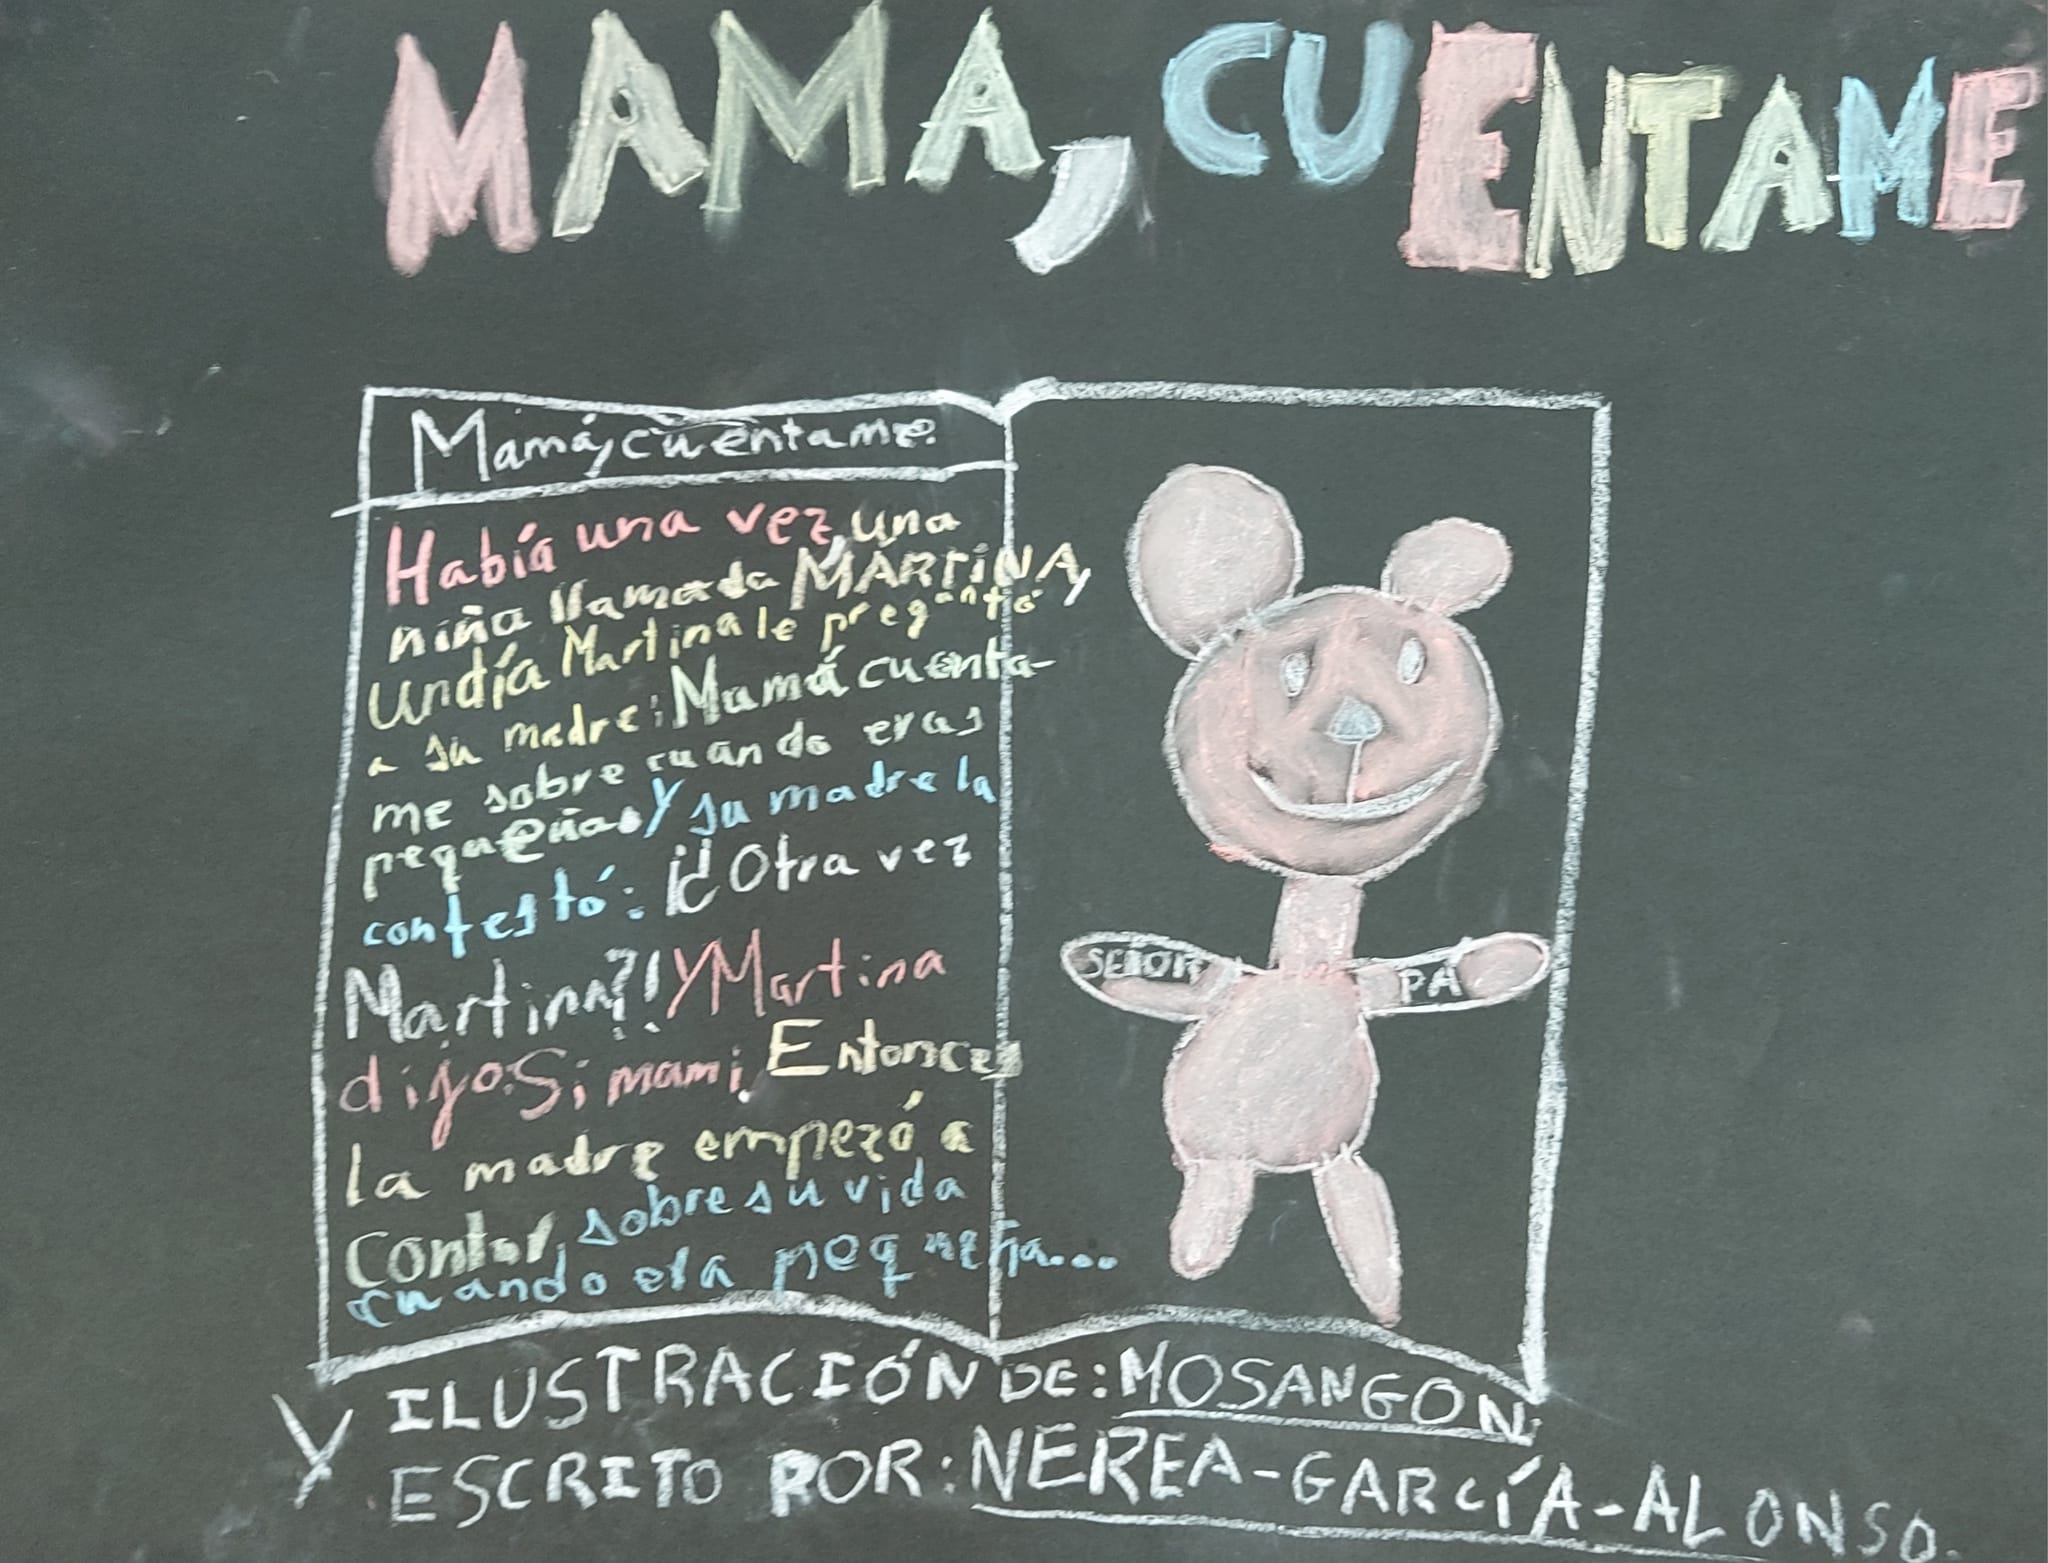 MAMA, CUENTAME
Mamá, cuentame.
Había una vez, una
niña llamada MARTiNA,
un día Martina le preguntó
a su madre: Mamá cuenta-
me sobre cuando eras
pequeña. Y su madre la
contestó: ¡¿Otra vez
Martina?! Y Martina
dijo: Si mami. Entonces
la madre empezó a
contar, sobre su vida
cuando era pequeña...
SEÑOR PA
ILUSTRACIÓN DE: MOSANGON
Y ESCRITO POR: NEREA-GARCÍA-ALONSO.